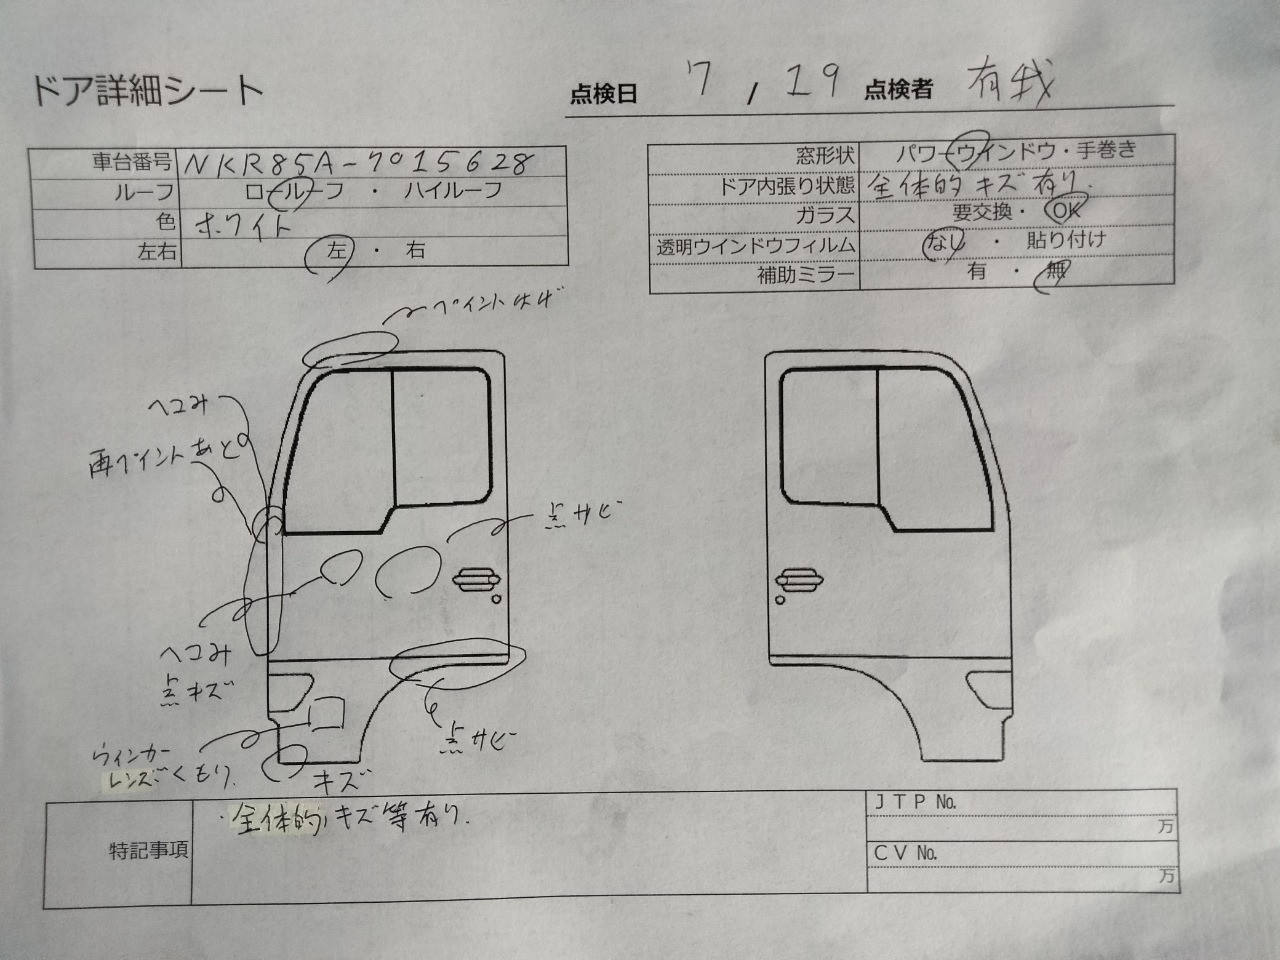 ドア詳細シート
点検日 7 , 19 点検者 有我
車台番号 NKR85A-7015628
ルーフ ロールーフ ・ ハイルーフ
色 ホワイト
左右 左 ・ 右
窓形状 パワーウインドウ・手巻き
ドア内張り状態 全体的キズ有り.
ガラス 要交換・ OK
透明ウインドウフィルム なし ・ 貼り付け
補助ミラー 有 ・ 無
ペイントはげ
ヘコみ
再ペイントあと
点サビ
ヘコみ
点キズ
点サビ
ウィンカー
レンズくもり.
キズ
特記事項 ・全体的,キズ等有り.
JTP No.
万
CV No.
万